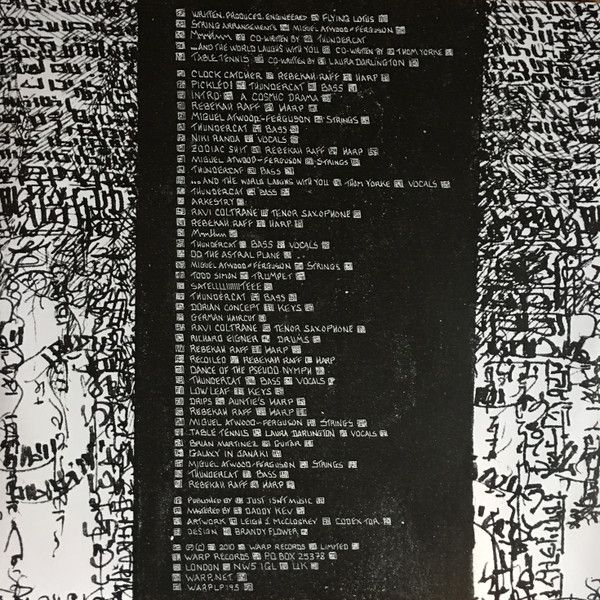 WRITTEN, PRODUCED, ENGINEERED FLYING LOTUS
STRING ARRANGEMENTS MIGUEL ATWOOD-FERGUSON
MmmHmm CO-WRITTEN BY THUNDERCAT
...AND THE WORLD LAUGHS WITH YOU CO-WRITTEN BY THOM YORKE
TABLE TENNIS CO-WRITTEN BY LAURA DARLINGTON
CLOCK CATCHER REBEKAH RAFF HARP
PICKLED! THUNDERCAT BASS
INTRO A COSMIC DRAMA
REBEKAH RAFF HARP
MIGUEL ATWOOD-FERGUSON STRINGS
THUNDERCAT BASS
NIKI RANDA VOCALS
ZODIAC SHIT REBEKAH RAFF HARP
MIGUEL ATWOOD-FERGUSON STRINGS
THUNDERCAT BASS
...AND THE WORLD LAUGHS WITH YOU THOM YORKE VOCALS
THUNDERCAT BASS
ARKESTRY
RAVI COLTRANE TENOR SAXOPHONE
REBEKAH RAFF HARP
MmmHmm
THUNDERCAT BASS VOCALS
DO THE ASTRAL PLANE
MIGUEL ATWOOD-FERGUSON STRINGS
TODD SIMON TRUMPET
THUNDERCAT BASS
DORIAN CONCEPT KEYS
GERMAN HAIRCUT
RAVI COLTRANE TENOR SAXOPHONE
RICHARD EIGNER DRUMS
REBEKAH RAFF HARP
RECOILED REBEKAH RAFF HARP
DANCE OF THE PSEUDO NYMPH
THUNDERCAT BASS VOCALS
LOW LEAF KEYS
DRIPS AUNTIE'S HARP
REBEKAH RAFF HARP
MIGUEL ATWOOD-FERGUSON STRINGS
TABLE TENNIS LAURA DARLINGTON VOCALS
BRIAN MARTINEZ GUITAR
GALAXY IN JANAKI
MIGUEL ATWOOD-FERGUSON STRINGS
THUNDERCAT BASS
REBEKAH RAFF HARP
PUBLISHED BY JUST ISN'T MUSIC
MASTERED BY DADDY KEV
ARTWORK LEIGH J. McCLOSKEY CODEX TOR
DESIGN BRANDY FLOWER
℗ © 2010 WARP RECORDS LIMITED
WARP RECORDS PO BOX 25378
LONDON NW5 1GL UK
WARP.NET
WARPLP195